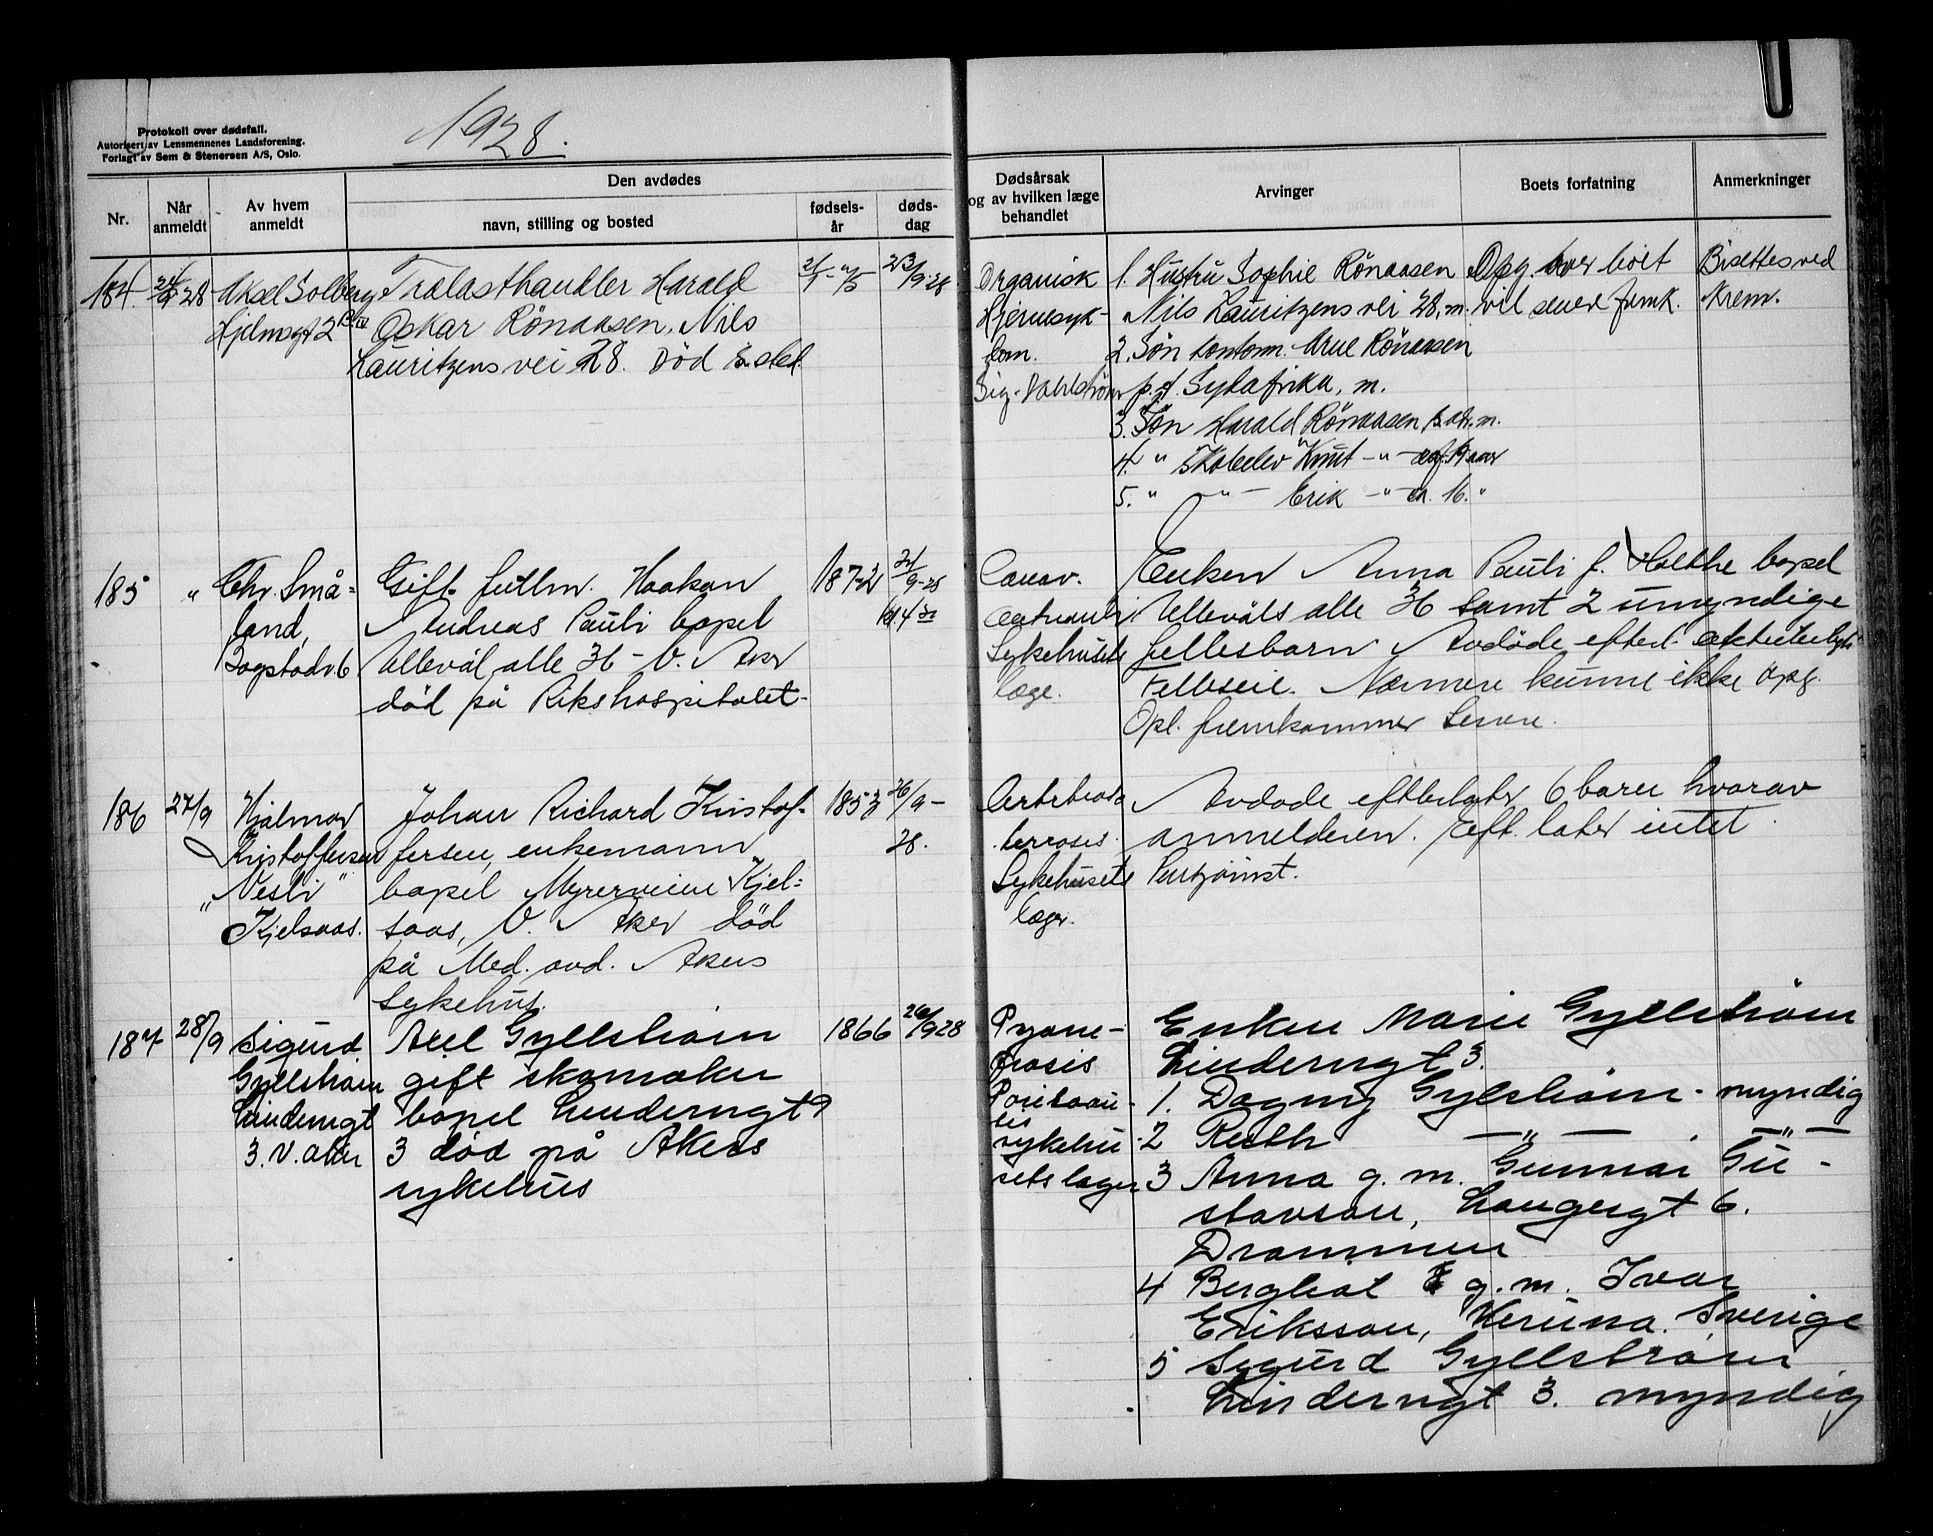 1928.
Protokoll over dødsfall.
Autorisert av Lensmennenes Landsforening.
Forlagt av Sem & Stenersen A/S, Oslo.
Nr.
Når anmeldt
Av hvem anmeldt
Den avdødes
navn, stilling og bosted
fødsels-år
døds-dag
Dødsårsak
og av hvilken læge
behandlet
Arvinger
Boets forfatning
Anmerkninger
184. 24/9 28
Aksel Solberg
Hjelmsgt 2
Trælasthandler Harald
Oskar Rönaasen, Nils
Lauritzens vei 28. Död
23/9-28
Organisk
Hjernesyk-
dom.
1. Hustru Sophie Rönaasen
Nils Lauritzens vei 28, m.
2. Sön kontorm. Arne Rönaasen
p.t. Sydafrika, m.
3. Sön Harald Rönaasen m.
4. " Skoleelev Knut -"- 19 aar
5. " -"- Erik -"- ca. 16. "
Opg. over boet
vil senere fremk.
Bisettes ved
Krem.
185 "
Chr. Små=
land,
Bogstadv. 6
Gift fullm. Haakon
Andreas Pauli bopel
Ullevål alle 36 - V. Aker
död på Rikshospitalet-
1872
24/9-28
kl. 4
Sykehusets
læge.
Enken Anna Pauli f. Holthe bopel
Ullevåls alle 36 samt 2 umyndige
fellesbarn Avdöde efterl.
Felleseie. Nærmere kunne ikke opg.
Opl. fremkommer senere.
186 27/9
Hjalmar
Kristoffersen
"Nesli"
Kjelsaas.
Johan Richard Kristof-
fersen, enkemann
bopel Myrerveien Kjel=
saas, V. Aker död
på Med. avd. Akers
Sykehus.
1853
26/9-
28.
Sykehusets
læger.
Avdöde efterlater 6 barn hvorav
anmelderen. Efterlater intet
187 28/9
Sigurd
Gyllström
Linderngt
3. V. Aker
Axel Gyllström
gift skomaker
bopel Linderngt
3 död på Akers
sykehus
1866
26/9 28
Pyone-
frosis
sykehu-
sets læger
Enken Marie Gyllström
Linderngt 3.
1. Dagny Gyllström - myndig
2 Ruth -"- -"-
3 Anna g. m. Gunnar Gu-
stavson, Haugesgt 6.
Drammen
4 Bergliot g. m. Ivar
Eriksson, Keruna. Sverige
5 Sigurd Gyllström
Linderngt 3. myndig